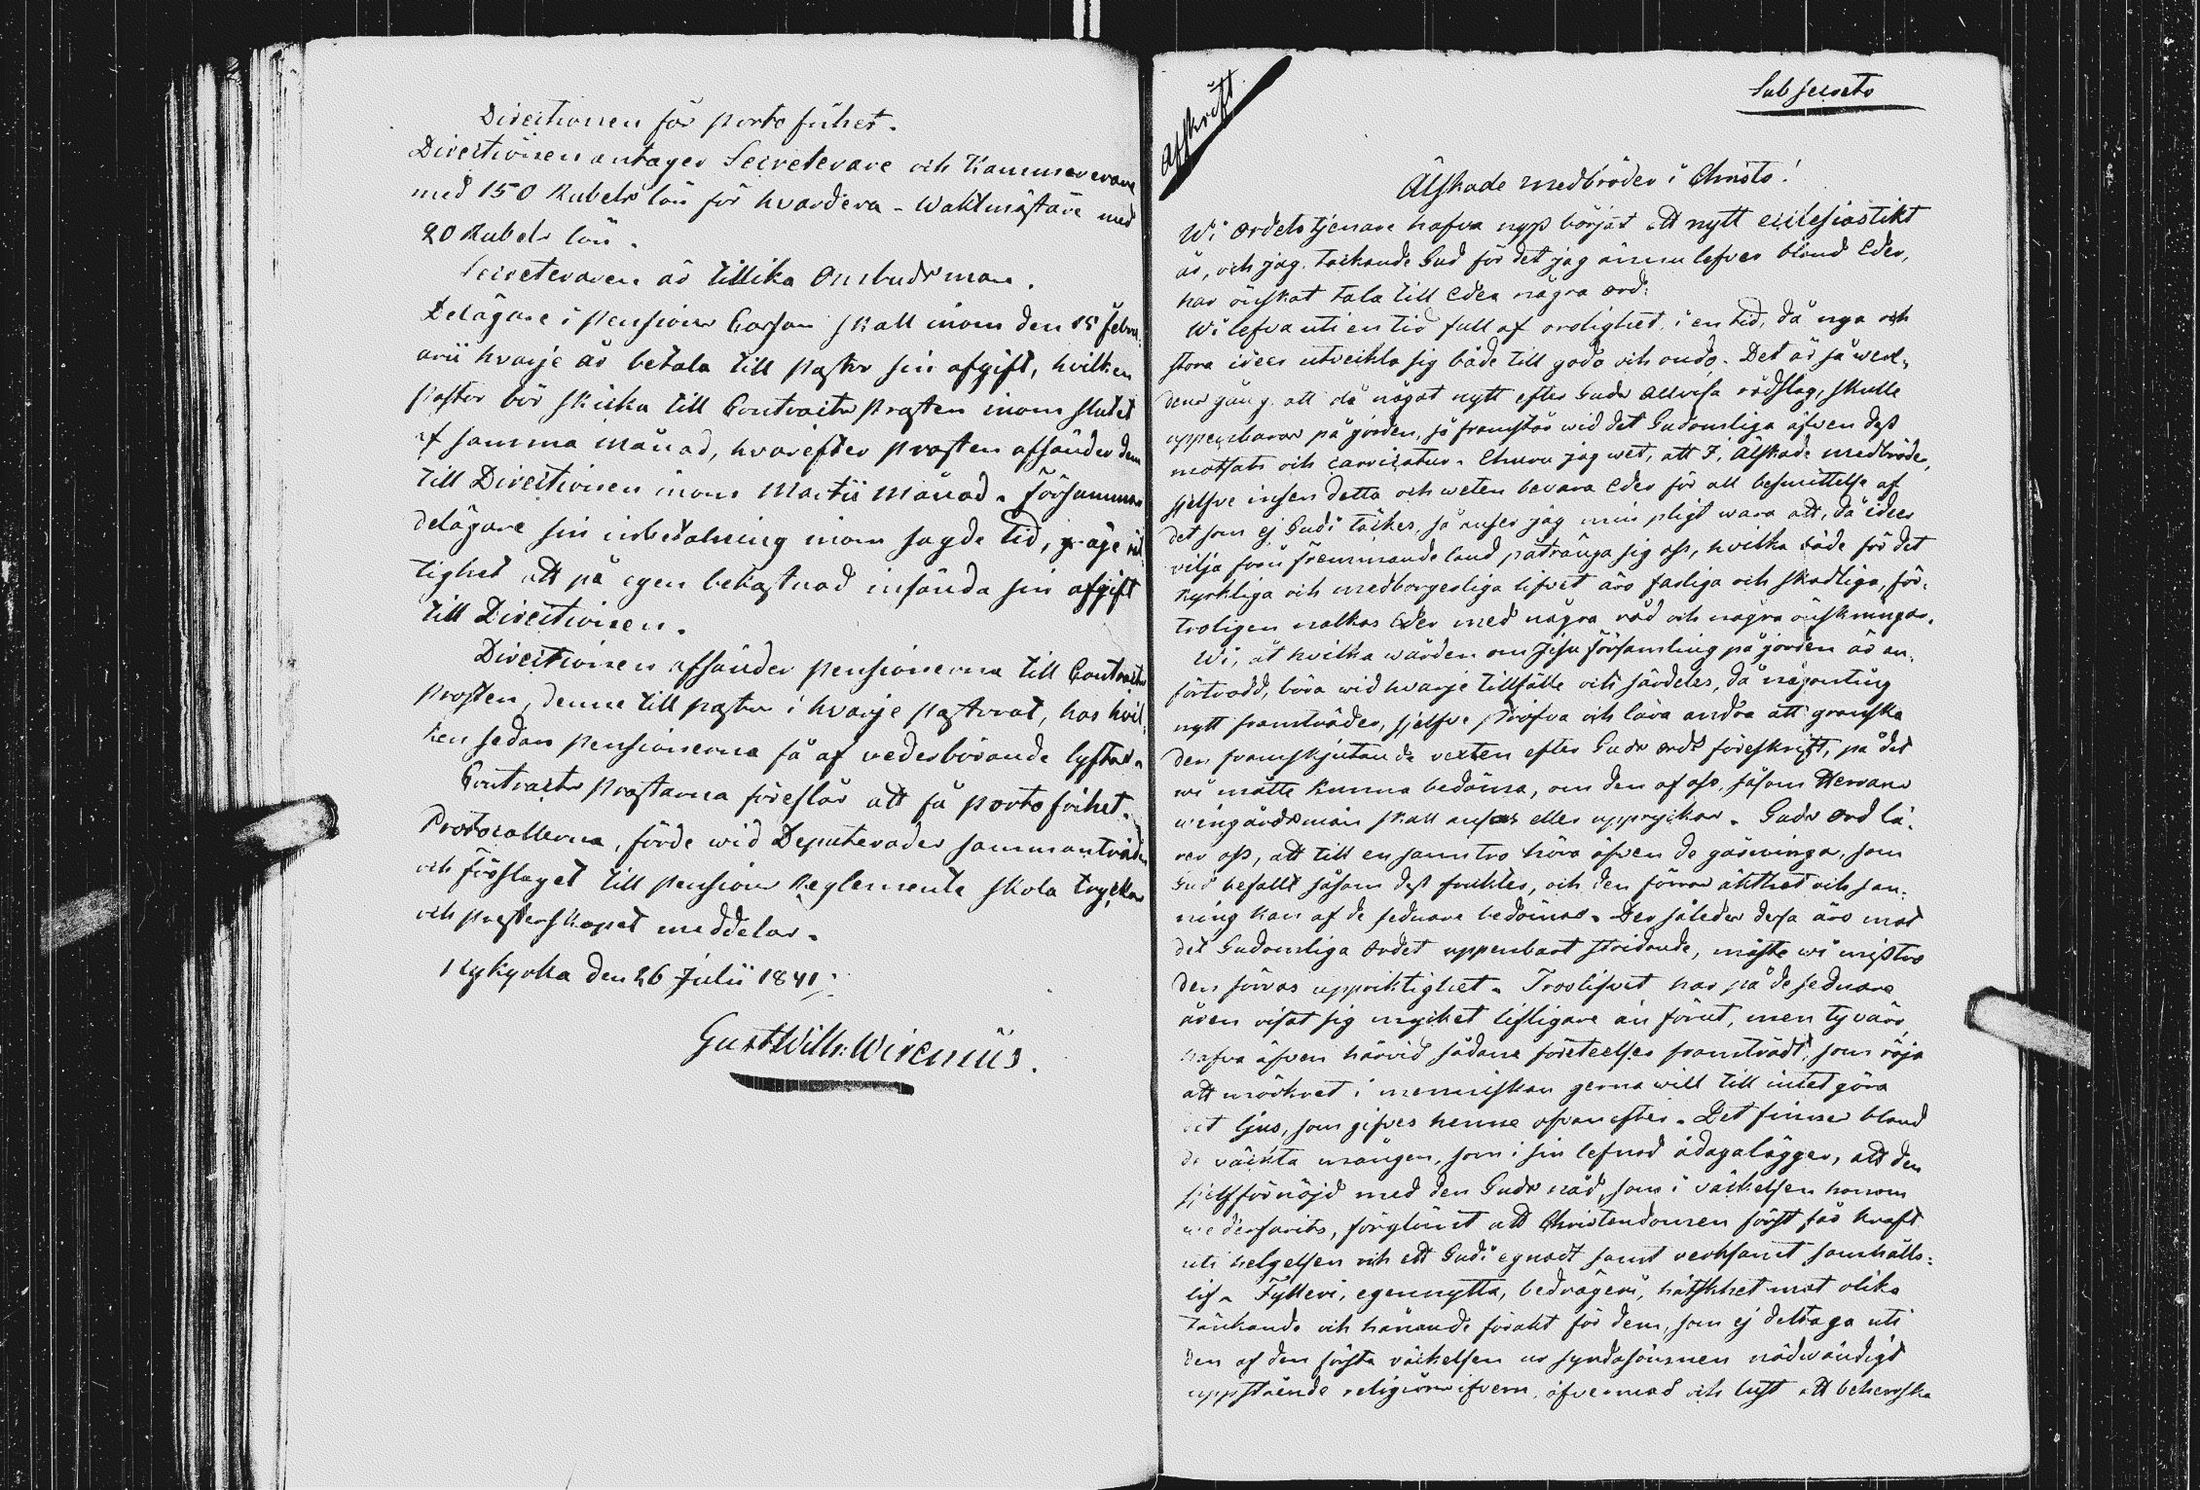 Directionen får porto frihet.
Directionen antager Secreterare och Kammererare
med 150 Rubels lön för hvardera - Waktmästare med
20 Rubels lön.
Secreteraren är tillika Ombudsman.
Delägare i pensions Cassan skall inom den 15 Febru-
arii hvarje år betala till pastor sin afgift, hvilken
pastor bör skicka till Contracts prosten inom slutet
af samma månad, hvarefter prosten afsänder dem
till Directionen inom Martii månad. Försummar
delägare sin inbetalning inom sagde tid, gifve rät
tighet att på egen bekostnad insända sin afgift
till Directionen.
Directionen afsänder pensionerna till Contracts
prosten, denne till pastor i hvarje pastorat, hos hvil
ken sedan pensionerna få af vederbörande lyftas.
Contracts prostarna föreslås att få porto frihet.
Protocollerna, förde wid Deputerades sammanträden
och förslaget till pensions Reglemente skola tryckas
och presterskapet meddelas.
Nykyrka den 26 Julii 1841.
Gust. Wilh: Wirenius.
Afskrift
Sub secreto
Älskade medbröder i Christo!
Wi Ordets tjenare hafva nyss börjat ett nytt ecclesiastikt
år, och jag, tackande Gud för det jag ännu lefver bland Eder,
har önskat tala till Eder några ord:
Wi lefva uti en tid full af orolighet, i en tid, då nya och
stora idéer utveckla sig både till godo och ondo. Det är så werl-
dens gång, att då något nytt efter Guds allvisa rådslag, skulle
uppenbaras på jorden, så framstår wid det Gudomliga äfven dess
motsats och carricatur. Ehuru jag wet, att I, älskade medbröder,
sjelfve insen detta och weten bevara Eder för all besmittelse af
det som ej Gudi täckes, så anser jag min pligt wara att, då idéer
vilja från främmande land påtränga sig oss, hvilka både för det
kyrkliga och medborgerliga lifvet äro farliga och skadliga, för-
troligen nalkas Eder med några råd och några önskningar.
Wi, åt hvilka wården om Jesu församling på jorden är an-
förtrodd, böra wid hvarje tillfälle och särdeles, då någonting
nytt framträder, sjelfve pröfva och lära andra att granska
den framskjutande vexten efter Guds ords föreskrift, på det
wi måtte kunna bedöma, om den af oss såsom Herrans
wingårdsmän skall ansas eller uppryckas. Guds ord lä-
rer oss, att till en sann tro höra äfven de gärningar, som
Gud befallt såsom dess frukter, och den förras äkthet och san-
ning kan af de sednare bedömas. Der således dessa äro mot
det Gudomliga Ordet uppenbart stridande, måste wi misstro
den förras uppriktighet. Troslifvet har på de sednare
åren visat sig mycket lifligare än förut, men tyvärr,
hafva äfven härvid sådane företeelser framträdt, som röja
att mörkret i menniskan gerna will till intet göra
det ljus, som gifves henne ofvanefter. Det finnes bland
de väckta mången, som i sin lefnad ådagalägger, att den
sjelf förnöjd med den Guds nåd, som i väckelsen honom
wederfarits, förglömt att Christendomen först får kraft
uti helgelsen och ett Gudi egnadt samt verksamt samhälls-
lif. Fylleri, egennytta, bedrägeri, hätskhet mot olika
tänkande och hånande förakt för dem, som ej deltaga uti
den af den första väckelsen ur syndasömnen nödwändigt
uppstående religionsifvern, öfvermod och lust att beherrska